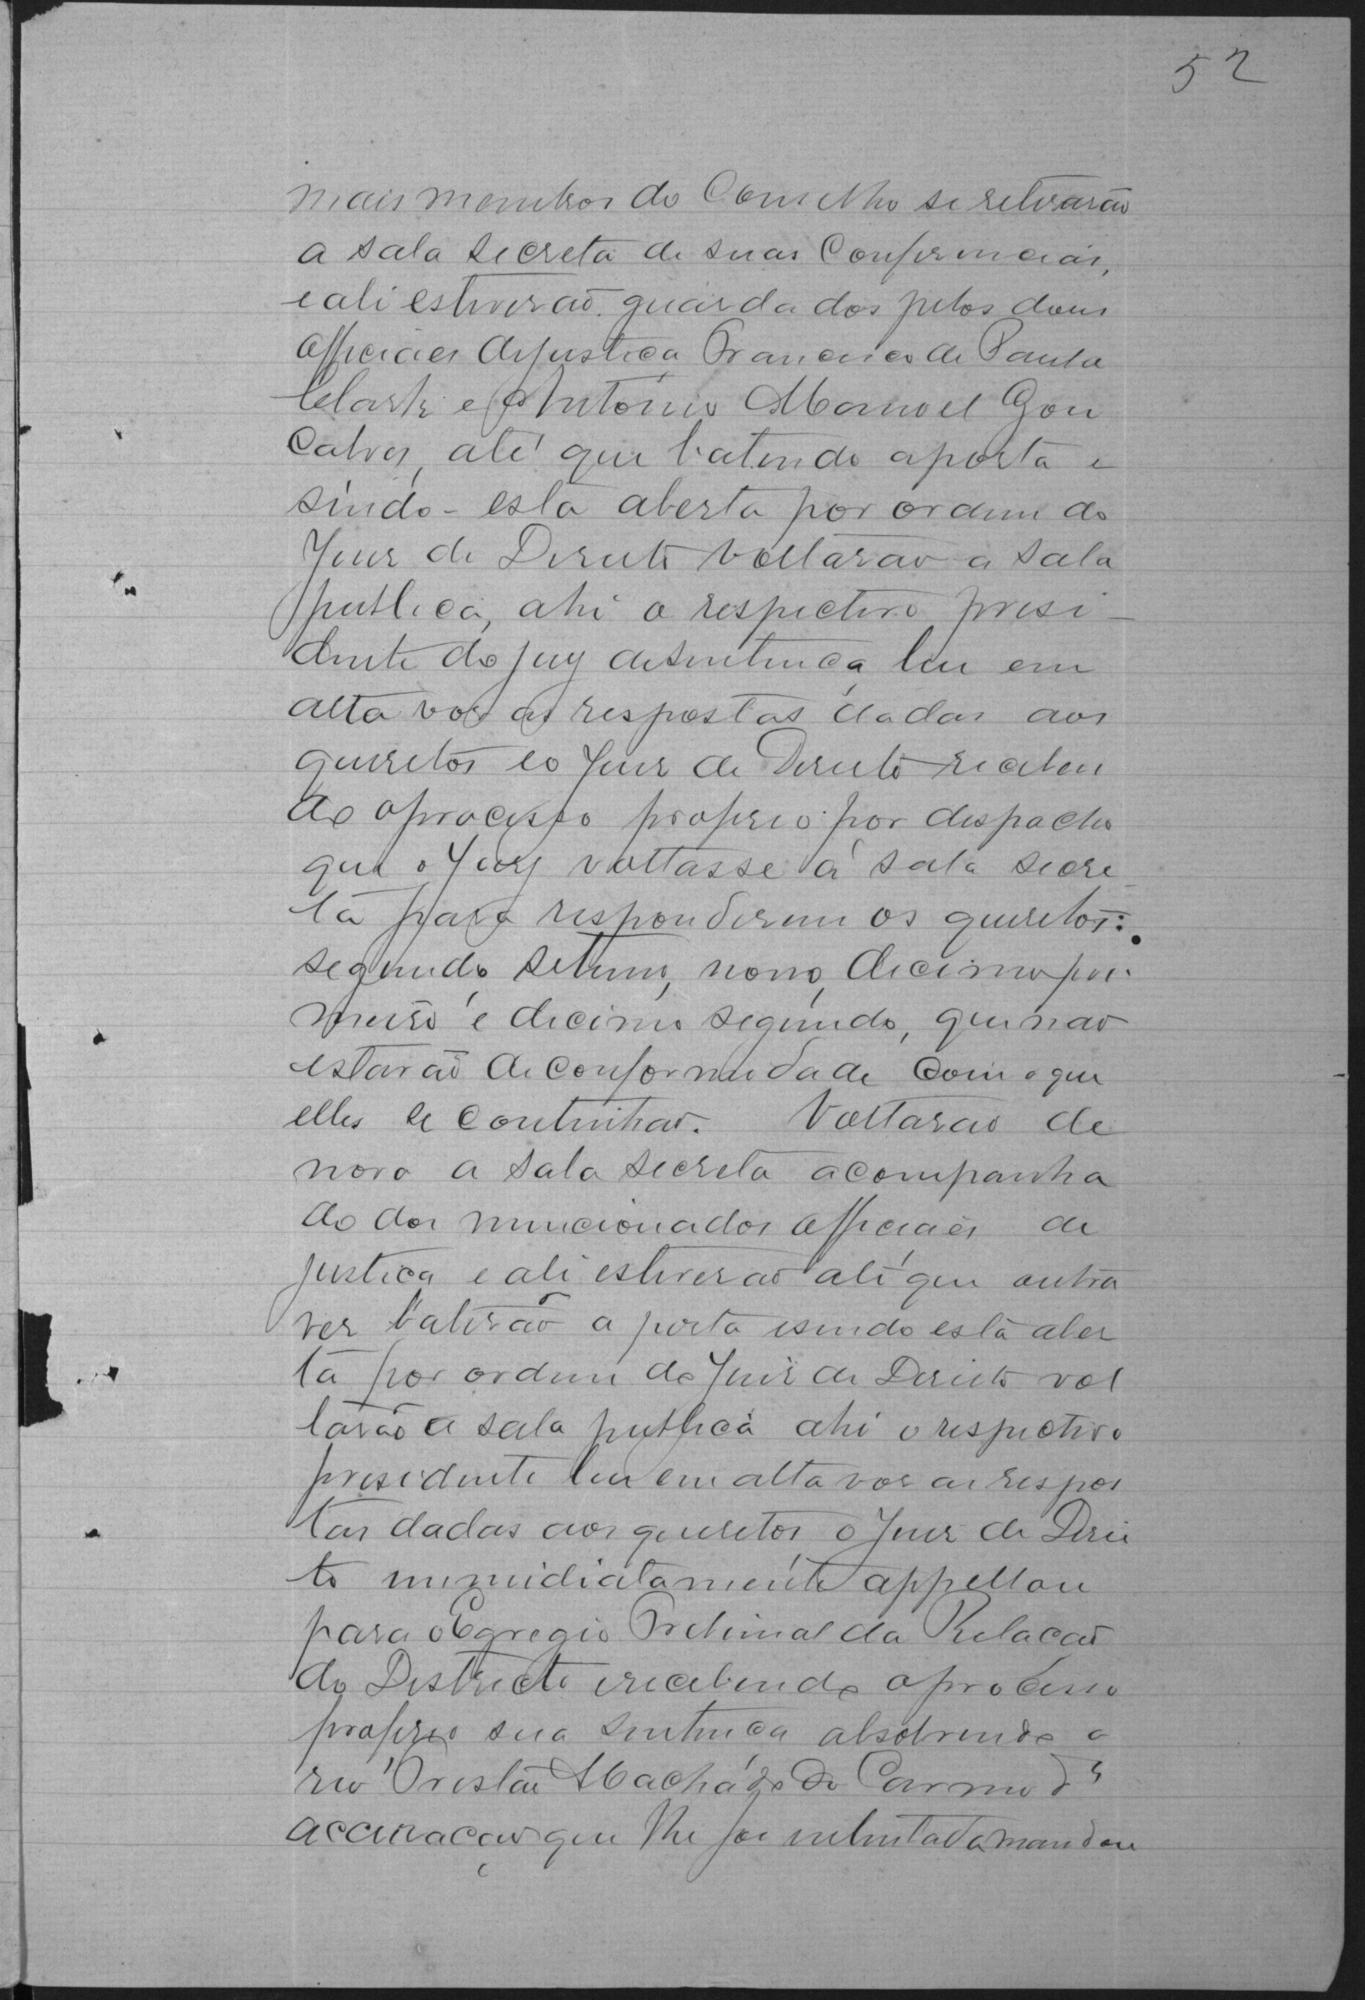 52
mais membros do Conselho se retirarão
a sala secreta de suas Conferencias,
e ali estiverão guardados pelos dous
officiaes de justiça Francisco de Paula
Clark e António Manoel Gon
calves, até que batendo a porta e
sindo - esta aberta por ordem do
Juiz de Direito voltarão a sala
publica, ahi o respectivo presi-
dente do jury de sentença leu em
alta voz as respostas dadas aos
quesitos e o Juiz de Direito receben
do o processo proferio por despacho
que o Jury voltasse á sala secre
ta para responderem os quesitos:
segundo, setimo, nono, decimo pri
meiro e decimo segundo, que não
estavão de conformidade com o que
elles se continhão. Voltarão de
novo a sala secreta acompanha
do dos mencionados officiaes de
justiça e ali estiverão até que outra
vez baterão a porta e sindo esta aber
ta por ordem do Juiz de Direito vol
tarão a sala publica ahi o respectivo
presidente leu em alta voz as respos
tas dadas aos quesitos, o Juiz de Direi
to immidiatamente appellou
para o Egregio Tribunal da Relação
do Districto e recebendo o processo
proferio sua sentença absolvendo o
reo Tristão Machado do Carmo da
accusação que lhe foi intentada mandou